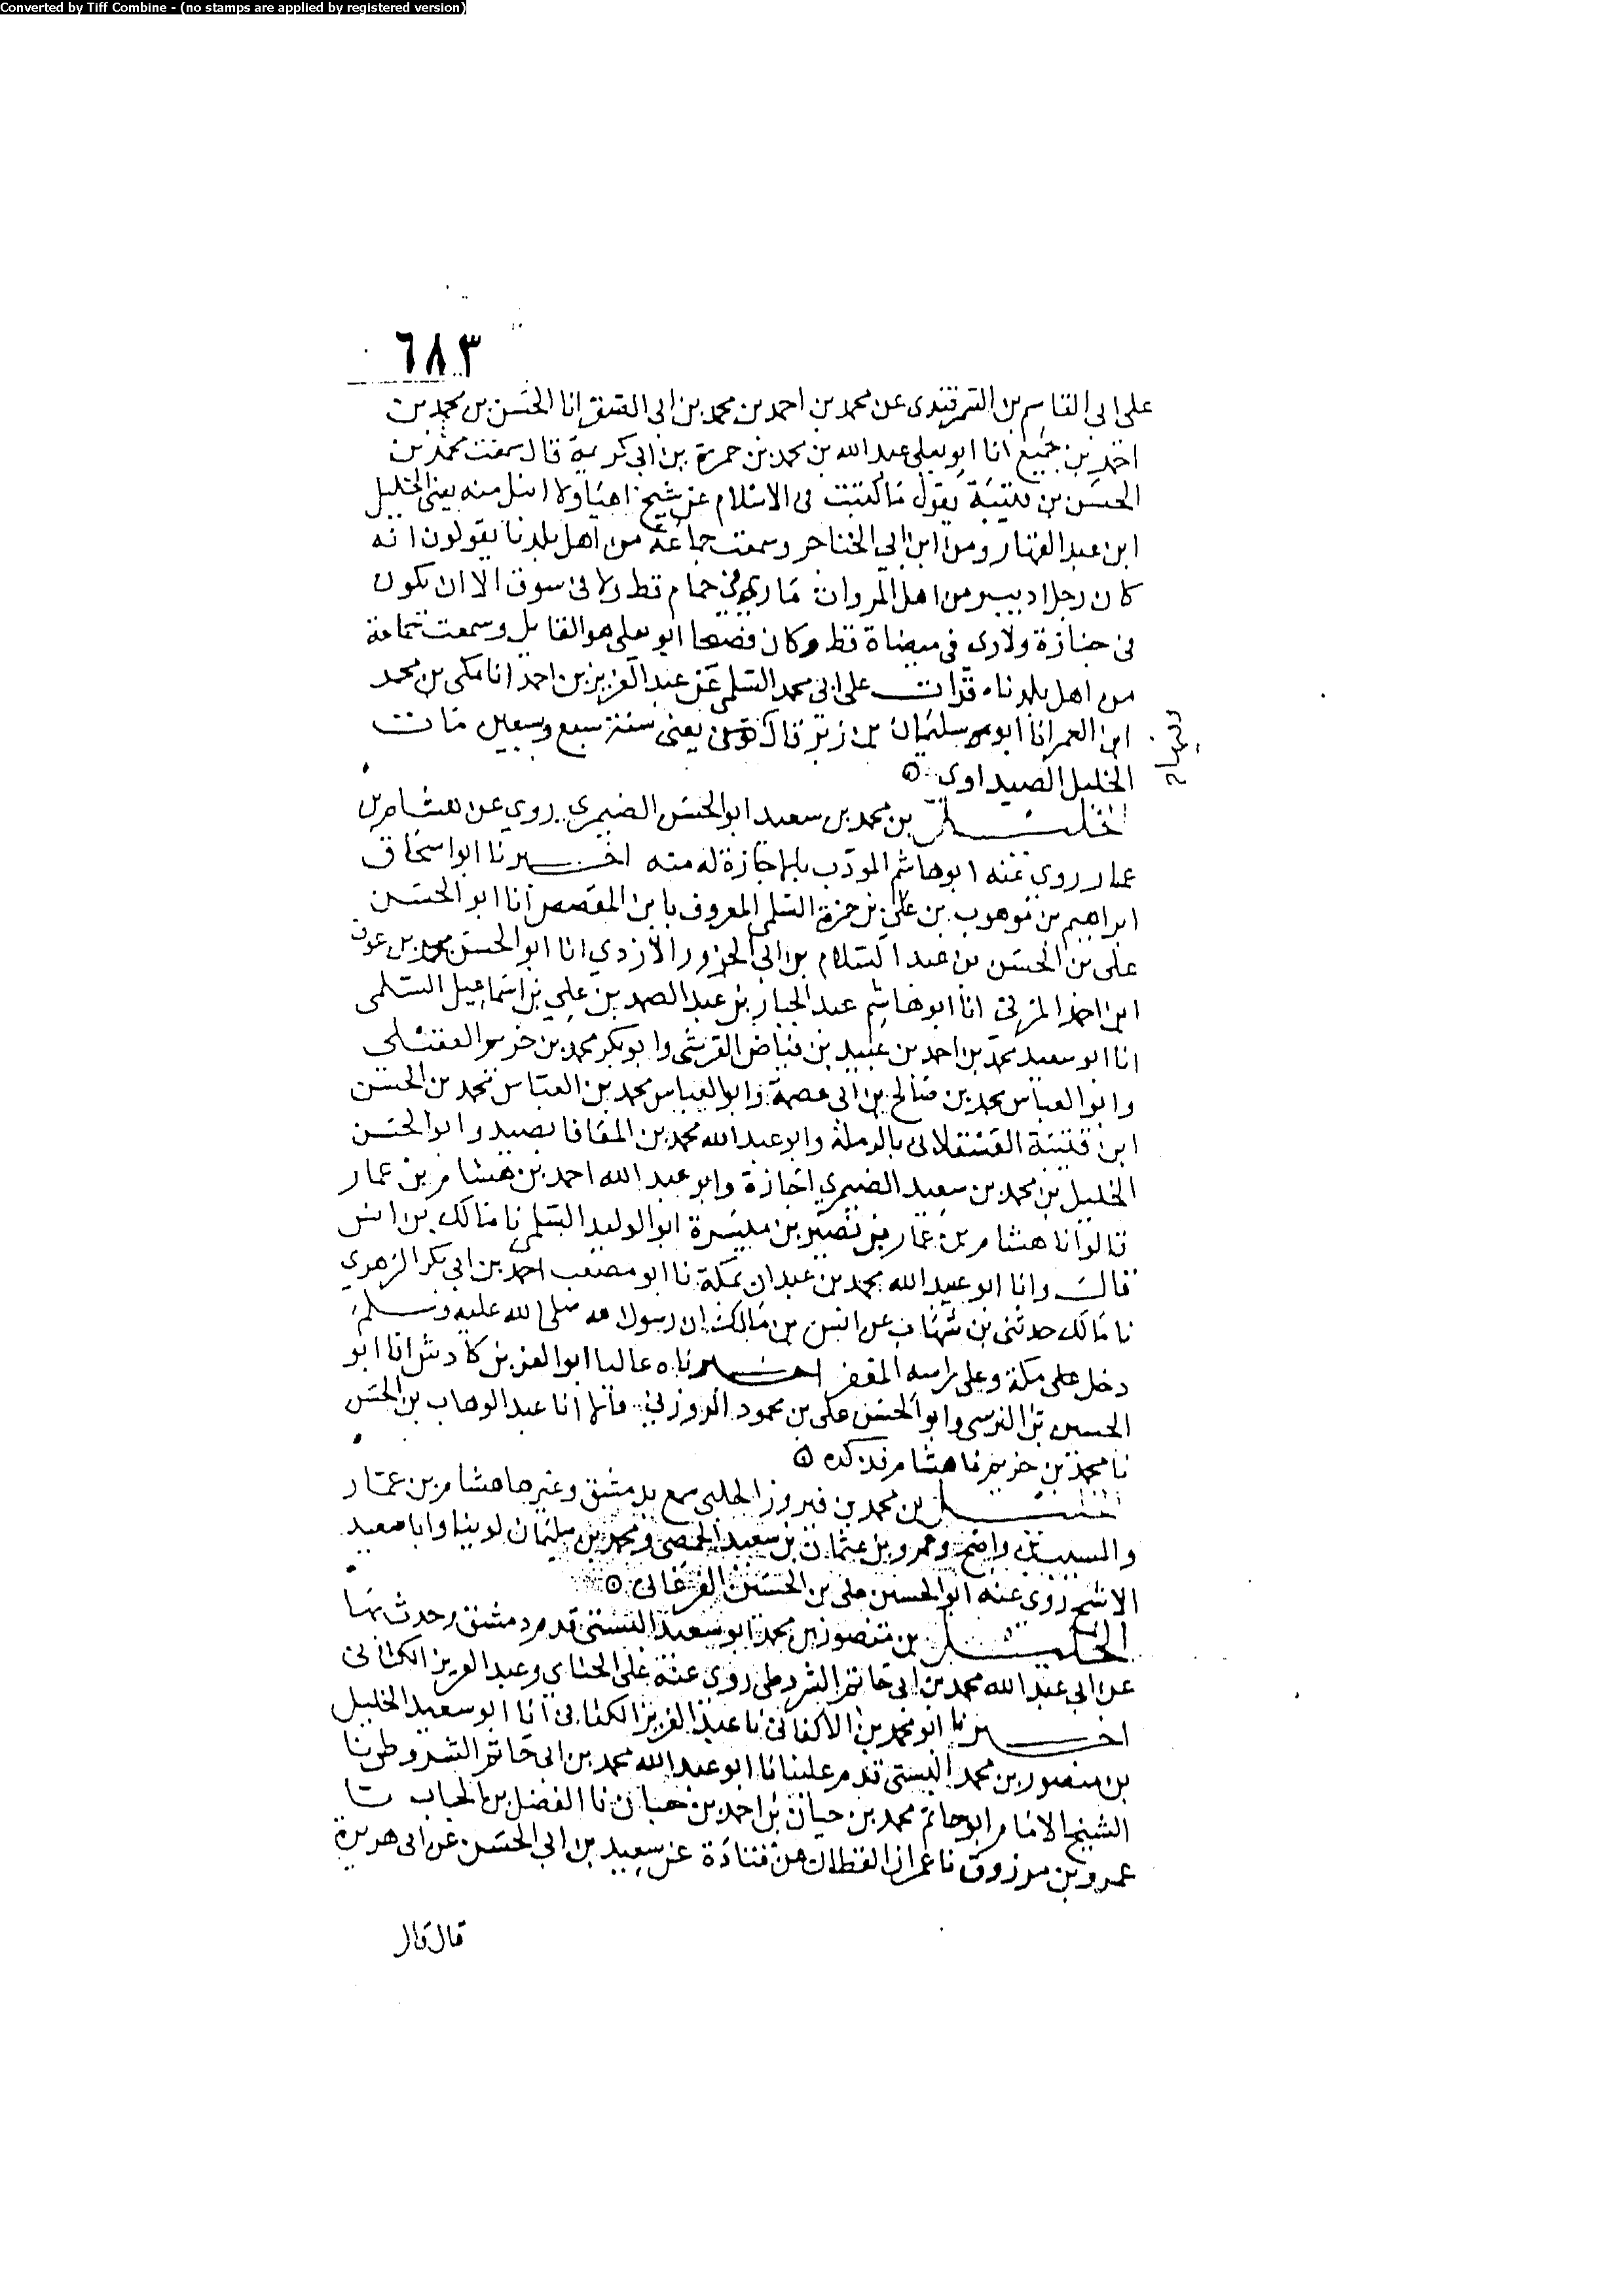 Converted by Tiff Combine - (no stamps are applied by registered version)
٦٨٣
على ابى القاسم بن السمرقندى عن محمد بن احمد بن محمد بن ابى الصقر انا الحسن بن محمد بن
احمد بن جميع انا ابو يعلى عبد الله بن محمد بن حمزة بن ابى كريمة قال سمعت محمد بن
الحسن بن قتيبة يقول ما كتبت فى الاسلام عن شيخ اهيا ولا انبل منه يعنى الخليل
ابن عبد القهار ومن ابن ابى الخناجر وسمعت جماعة من اهل بلدنا يقولون انه
كان رجلا من اهل المروات ما رى فى حمام قط ولا فى سوق الا ان يكون
فى جنازة ولا رى فى ميضاة قط وكان ابو يعلى هو القايل وسمعت جماعة
من اهل بلدنا قرات على ابى محمد السلمى عن عبد العزيز بن احمد انا مكى بن محمد
ابن الغمر انا ابو سليمان بن زبر قال يعنى سنة سبع وسبعين مات
الخليل الصيداوى ه
الخليل بن محمد بن سعيد ابو الحسن الضيمرى روى عن هشام بن
عمار روى عنه ابو هاشم المودب بالاجازة له منه اخبرنا ابو اسحاق
ابراهيم بن موهوب بن على بن حمزة السلمى المعروف بابن المقصص انا ابو الحسن
على بن الحسن بن عبد السلام بن ابى الحزور الازدي انا ابو الحسن محمد بن عوف
ابن احمد المزنى انا ابو هاشم عبد الجبار بن عبد الصمد بن علي بن اسماعيل السلمى
انا ابو سعيد محمد بن احمد بن عبيد بن فياض القرشى وابو بكر محمد بن خريم العقيلى
وابو العباس محمد بن صالح بن ابى عصمة وابو العباس محمد بن العباس محمد بن الحسن
ابن قتيبة العسقلانى بالرملة وابو عبد الله محمد بن المعافا بصيدا وابو الحسن
الخليل بن محمد بن سعيد الضيمري اجازة وابو عبد الله احمد بن هشام بن عمار
قالوا انا هشام بن عمار بن نصير بن ميسرة ابو الوليد السلمى نا مالك بن انس
قال وانا ابو عبيد الله محمد بن عبدان بمكة نا ابو مصعب احمد بن ابي بكر الزهري
نا مالك حدثنى بن شهاب عن انس بن مالك ان رسول الله صلى الله عليه وسلم
دخل مكة وعلى راسه المغفر اخبرناه عاليا ابو العز بن كادش انا ابو
الحسين بن النرسى وابو الحسن على بن محمود الزوزني قالا انا عبد الوهاب بن الحسن
نا محمد بن خريم نا هشام فذكره ه
الخليل بن محمد بن فيروز الحلبى سمع بدمشق وغيرها هشام بن عمار
والمسيب بن واضح وعمرو بن عثمان بن سعيد الحمصى ومحمد بن سليمان لوينا وابا سعيد
الاشج روى عنه ابو الحسين على بن الحسين الفرغانى ه
الخليل بن منصور بن محمد ابو سعيد البستى قدم دمشق وحدث بها
عن ابى عبد الله محمد بن ابى حاتم الشروطى روى عنه على الحناى وعبد العزيز الكتانى
اخبرنا ابو محمد بن الاكفانى نا عبد العزيز الكتانى انا ابو سعيد الخليل
بن منصور بن محمد البستى قدم علينا انا ابو عبد الله محمد بن ابى حاتم الشروطى نا
الشيخ الامام ابو حاتم محمد بن حبان بن احمد بن حبان نا الفضل بن الحباب نا
عمرو بن مرزوق نا عمران القطان عن قتادة عن سعيد بن ابي الحسن عن ابى هريرة
قال قال